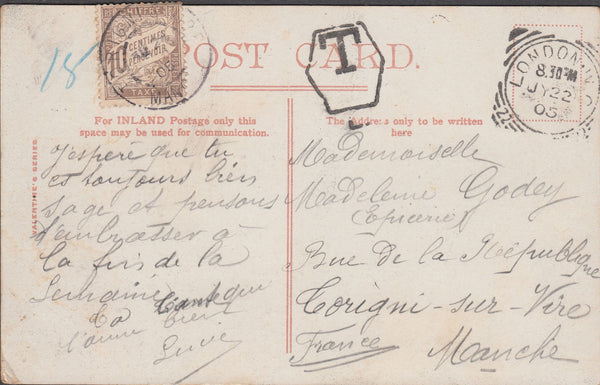 18
10
CENTIMES
TAXE
MANCHE
POST CARD.
T
LONDON. W.C.
8.30 PM
JY 22
05
22
For INLAND Postage only this
space may be used for communication.
The Address only to be written
here
VALENTINE'S SERIES
J'espère que tu
es toujours bien
sage et pensons
t'embrasser à
la fin de la
semaine
Mademoiselle
Madeleine Godey
(Epicerie)
Rue de la République
Torigni-sur-Vire
France
Manche